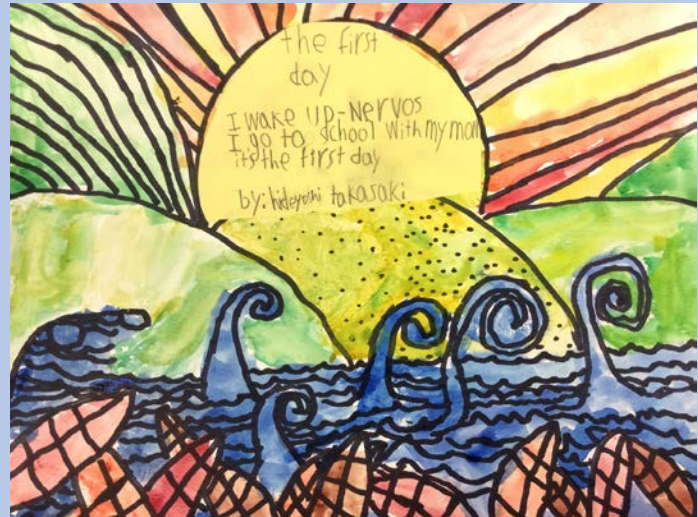 the first
day
I wake up-nervos
I go to school with my mom
it's the first day
by: hideyoshi takasaki